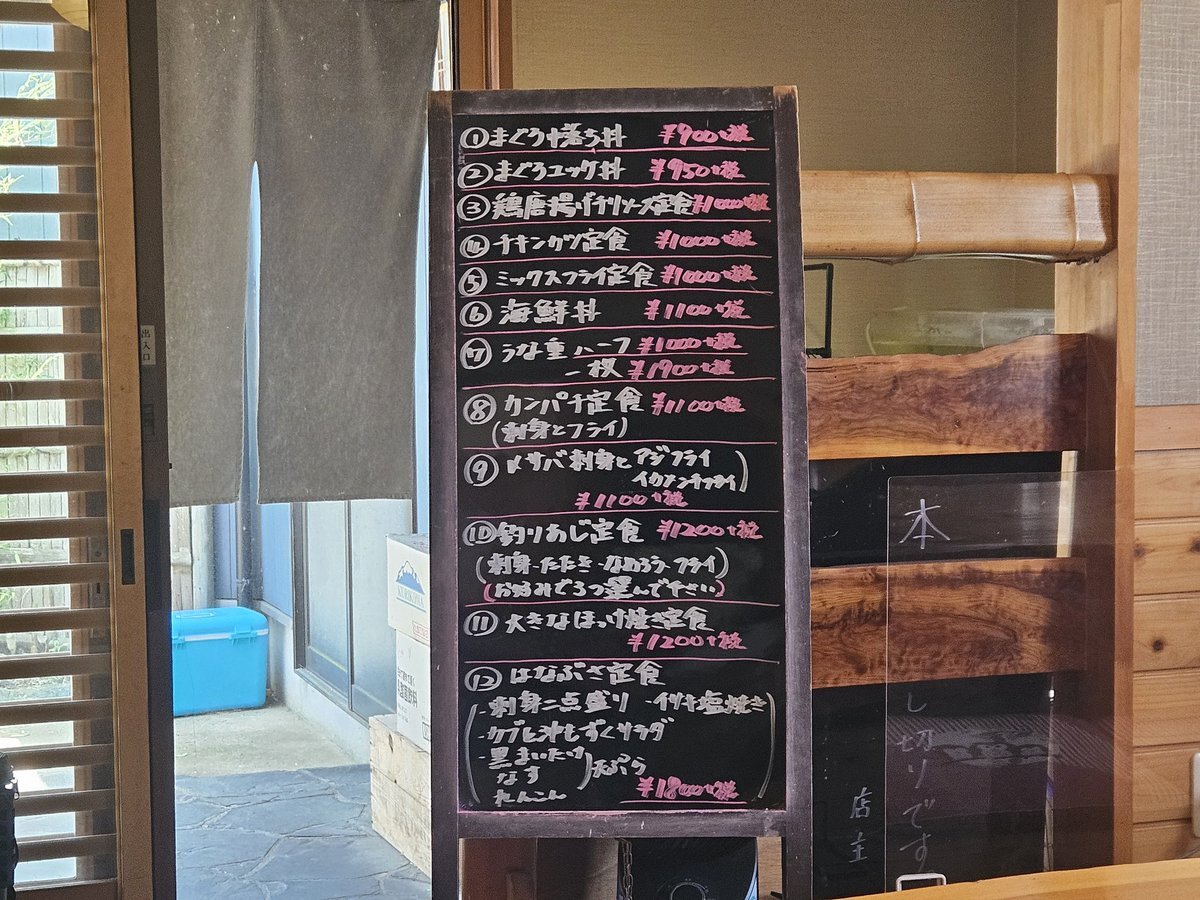 ①まぐろ中落ち丼 ¥900+税
②まぐろユッケ丼 ¥950+税
③鶏唐揚げチリソース定食 ¥1000+税
④チキンカツ定食 ¥1000+税
⑤ミックスフライ定食 ¥1000+税
⑥海鮮丼 ¥1100+税
⑦うな重ハーフ ¥1000+税
一枚 ¥1900+税
⑧カンパチ定食 ¥1100+税
(刺身とフライ)
⑨〆サバ刺身とアジフライ
イカメンチフライ)
¥1100+税
⑩釣りあじ定食 ¥1200+税
(刺身・たたき・なめろう・フライ)
(お好みで2つ選んで下さい)
⑪大きなほっけ焼き定食
¥1200+税
⑫はなぶさ定食
・刺身二点盛り ・イサキ塩焼き
・カブと沖もずくサラダ
・黒まいたけ
なす
れんこん
天ぷら
¥1800+税
出入口
KURIKOMA
本
し切りです
店主